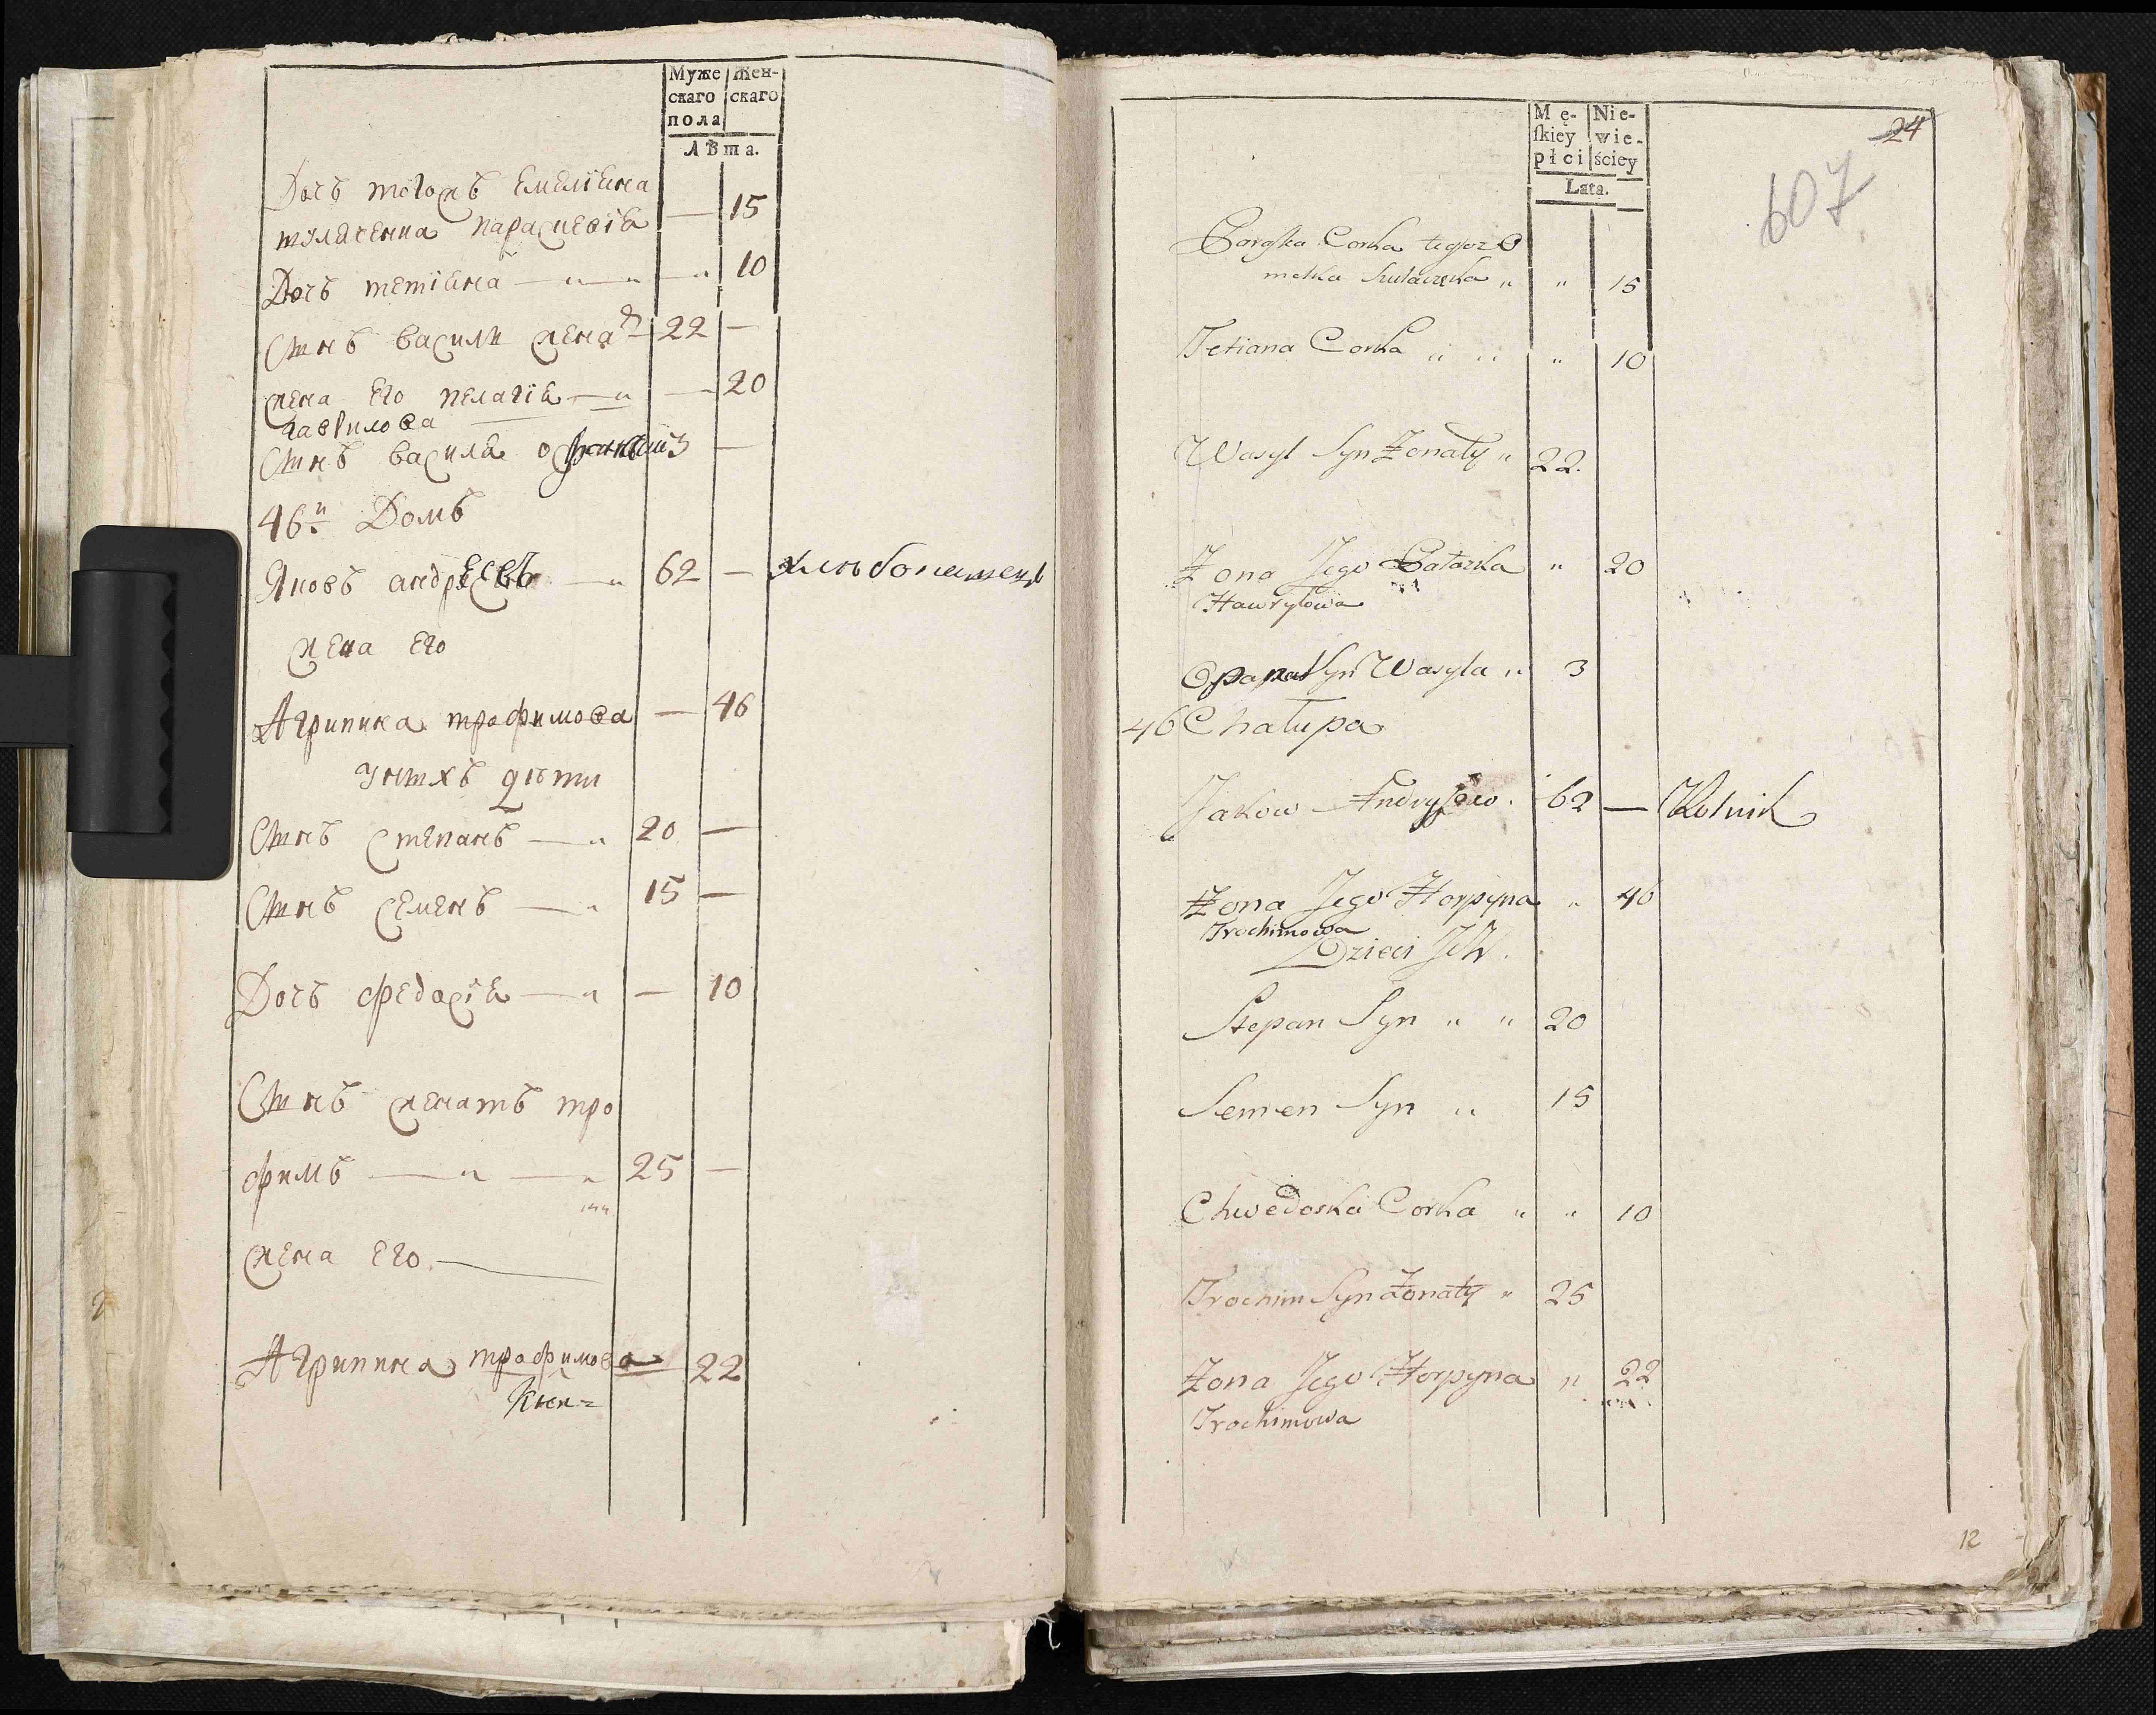 Муже скаго пола
Жен- скаго
Лѣта.
Дочъ тогожъ Емелiана
тулѧченка параскевiѧ — 15
Дочъ тетiана — „ — „ — „ 10
Сынъ васили женат 22 —
жена его пелагiѧ — „ — 20
гаврилова
Сынъ василѧ 3 —
46й Домъ
Яковъ андреевъ — „ 62 — хлебопашецъ
жена его
Агрипина трофимова — 46
Унихъ дѣти
Сынъ Степанъ — „ 20 —
Сынъ Семенъ — „ 15 —
Дочъ федосiѧ — „ — 10
Сынъ женатъ тро
фимъ — „ — „ 25 —
жена его
Агрипина трофимова — 22
Mę- ſkiey płci
Nie- wie- ściey
Lata.
24
607
Paraſka Corka tegoż O
melka Tułaczeka „ „ 15
Tetiana Corka „ „ „ 10
Wasyl Syn Żonaty „ 22.
Żona Jego Pałażka „ 20
Hawryłowa
Opanas Syn Wasyla „ 3
46 Chałupa
Jakow Andryjew. 62 — Rolnik
Żona Jego Horpyna „ 46
Trochimowa
Dzieci Ich.
Stepan Syn „ „ 20
Semen Syn „ 15
Chwedoska Corka „ „ 10
Trochim Syn Żonaty „ 25
Żona Jego Horpyna „ 22
Trochimowa
12